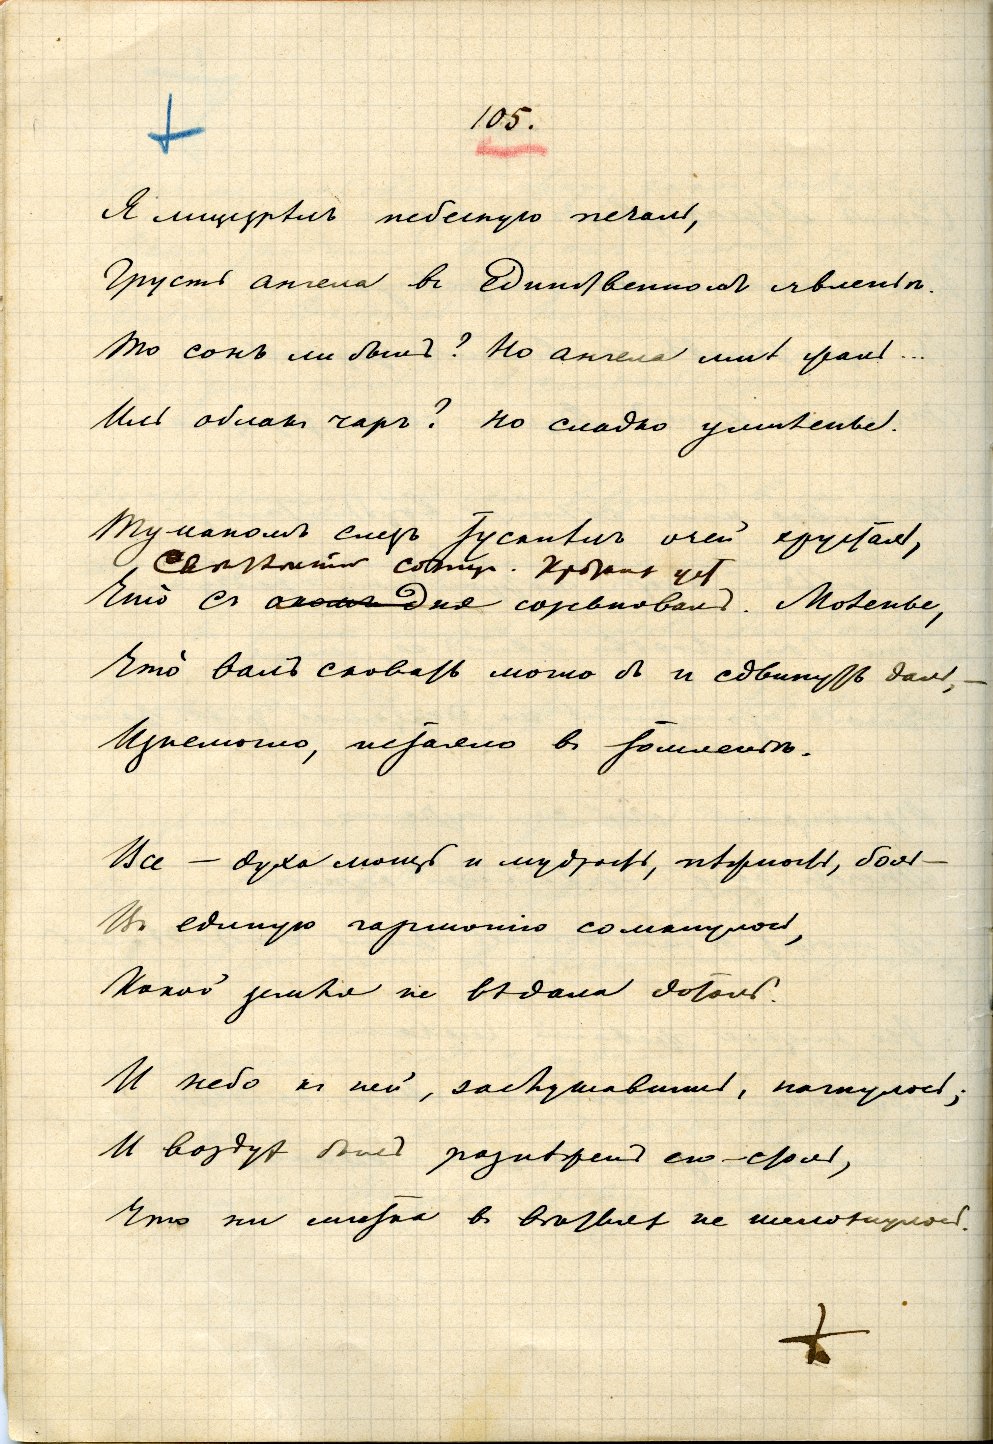 105.
Я лицезрѣлъ небесную печаль,
Грусть ангела въ единственномъ явленьи.
То сонъ ли былъ? Но ангела мнѣ жаль...
Иль облакъ чаръ? Но сладко умиленье.
Туманомъ слезъ тускнѣлъ очей хрусталь,
солнцу.
Что съ окомъ дня соревновалъ. Моленье,
Что валъ сковать могло бъ и сдвинуть даль, —
Изнемогло, истаяло въ томленьи.
Все — духа мощь и мудрость, нѣжность, боль —
Въ единую гармонію сомкнулось,
Какой земля не вѣдала дотоль.
И небо къ ней, заслушавшись, нагнулось;
И воздухъ былъ разнѣженъ ею — столь,
Что ни листка въ вѣтвяхъ не шелохнулось.